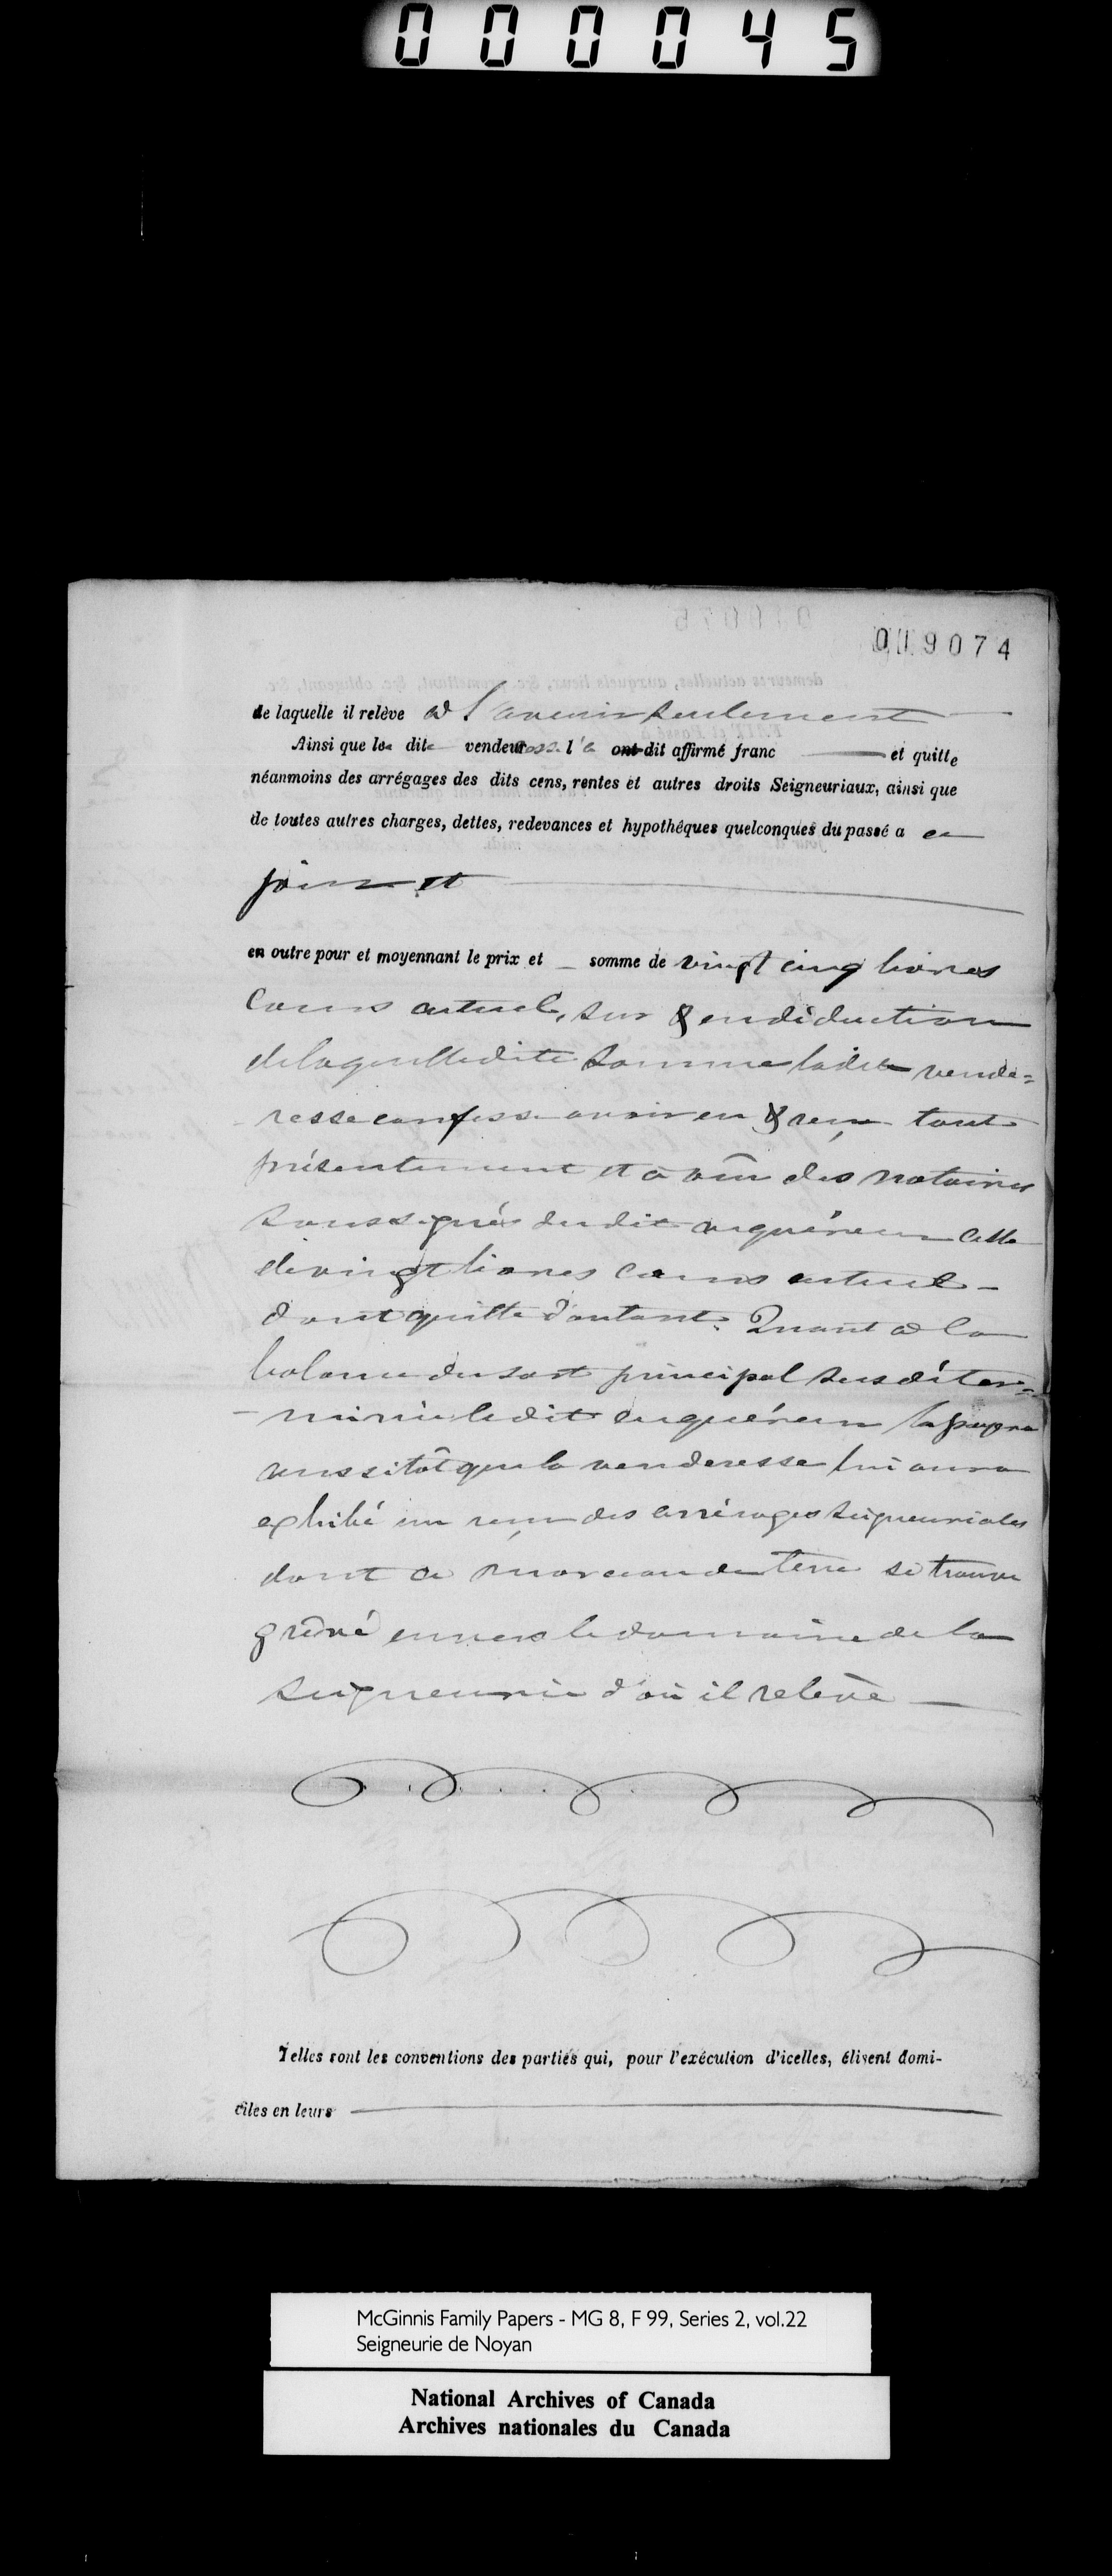 000045
019074
de laquelle il relève à l'avenir seulement
Ainsi que la dite venderesse l'a dit affirmé franc et quitte
néanmoins des arrégages des dits cens, rentes et autres droits Seigneuriaux, ainsi que
de toutes autres charges, dettes, redevances et hypothêques quelconques du passé a ce
jour et
en outre pour et moyennant le prix et somme de vingt cinq livres
cours actuel, sur & en déduction
de laquelle dite somme la dite vende=
resse confesse avoir eu & reçu tout
présentement et à vûe des notaires
soussignés du dit acquéreur celle
de vingt livres cours actuel
dont quitte d'autant. Quant à la
balance du sort principal sus déter=
-miné le dit acquéreur la payera
aussitôt que la venderesse lui aura
exhibé un reçu des arrérages seigneuriales
dont ce morceau de terre se trouve
grêvé envers le domaine de la
seigneurie d'où il relève
Telles sont les conventions des parties qui, pour l'exécution d'icelles, élisent domi-
ciles en leurs
McGinnis Family Papers - MG 8, F 99, Series 2, vol.22
Seigneurie de Noyan
National Archives of Canada
Archives nationales du Canada